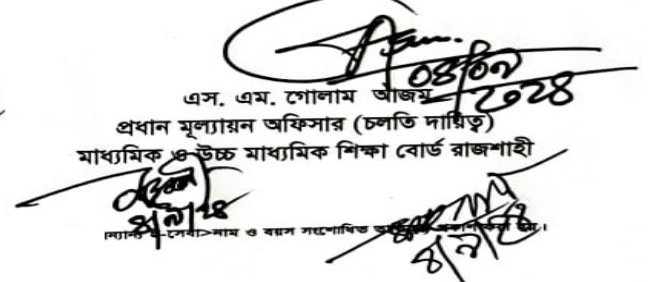 ০৪/০৯/২০২৪
এস. এম. গোলাম আজম
প্রধান মূল্যায়ন অফিসার (চলতি দায়িত্ব)
মাধ্যমিক ও উচ্চ মাধ্যমিক শিক্ষা বোর্ড রাজশাহী
৪/৯/২৪
নাম ও বয়স সংশোধিত
৪/৯/২৪